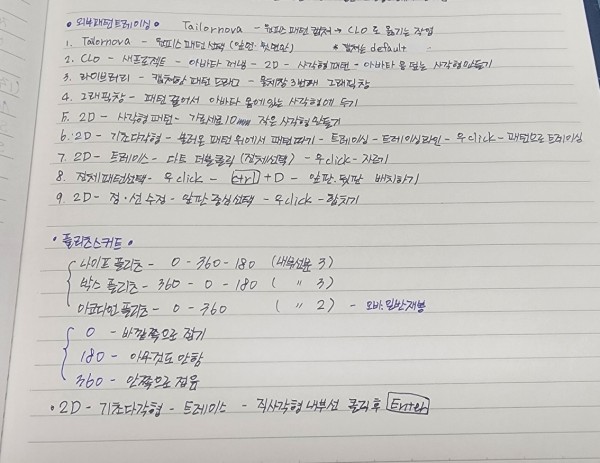 • 외부패턴트레이싱 • Tailornova - 원피스 패턴 캡쳐 → CLO로 옮기는 작업
1. Tailornova - 원피스 패턴 선택 (앞면·뒷면만) * 캡쳐는 default
2. CLO - 새프로젝트 - 아바타 꺼냄 - 2D - 사각형 패턴 - 아바타 몸 덮는 사각형 만들기
3. 라이브러리 - 캡쳐한 패턴 드래그 - 물체창 3번째 그래픽창
4. 그래픽창 - 패턴 끌어서 아바타 몸에 있는 사각형에 두기
5. 2D - 사각형 패턴 - 가로세로 10mm 작은 사각형 만들기
6. 2D - 기초다각형 - 불러온 패턴 위에서 패턴따기 - 트레이싱 - 트레이싱라인 - 우click - 패턴으로 트레이싱
7. 2D - 트레이스 - 다트 더블클릭 (전체선택) - 우click - 자르기
8. 전체패턴선택 - 우click - ctrl + D - 앞판·뒷판 배치하기
9. 2D - 점·선 수정 - 앞판 중심선택 - 우click - 합치기
• 플리츠스커트 •
나이프 플리츠 - 0 - 360 - 180 (내부선분 3)
박스 플리츠 - 360 - 0 - 180 ( 〃 3)
아코디언 플리츠 - 0 - 360 ( 〃 2) - 오바·일반재봉
0 - 바깥쪽으로 접기
180 - 아무것도 안함
360 - 안쪽으로 접음
• 2D - 기초다각형 - 트레이스 - 직사각형 내부선 클릭 후 Enter